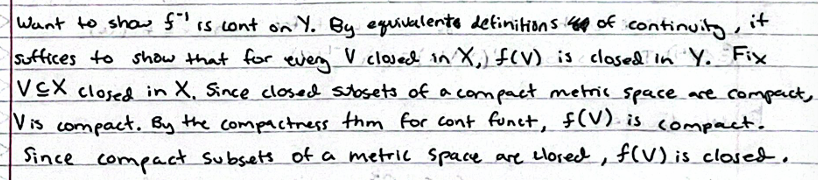 Want to show f⁻¹ is cont on Y. By equivalents definitions of continuity, it
suffices to show that for every V closed in X, f(V) is closed in Y. Fix
V⊆X closed in X. Since closed subsets of a compact metric space are compact,
V is compact. By the compactness thm for cont funct, f(V) is compact.
Since compact subsets of a metric space are closed, f(V) is closed.